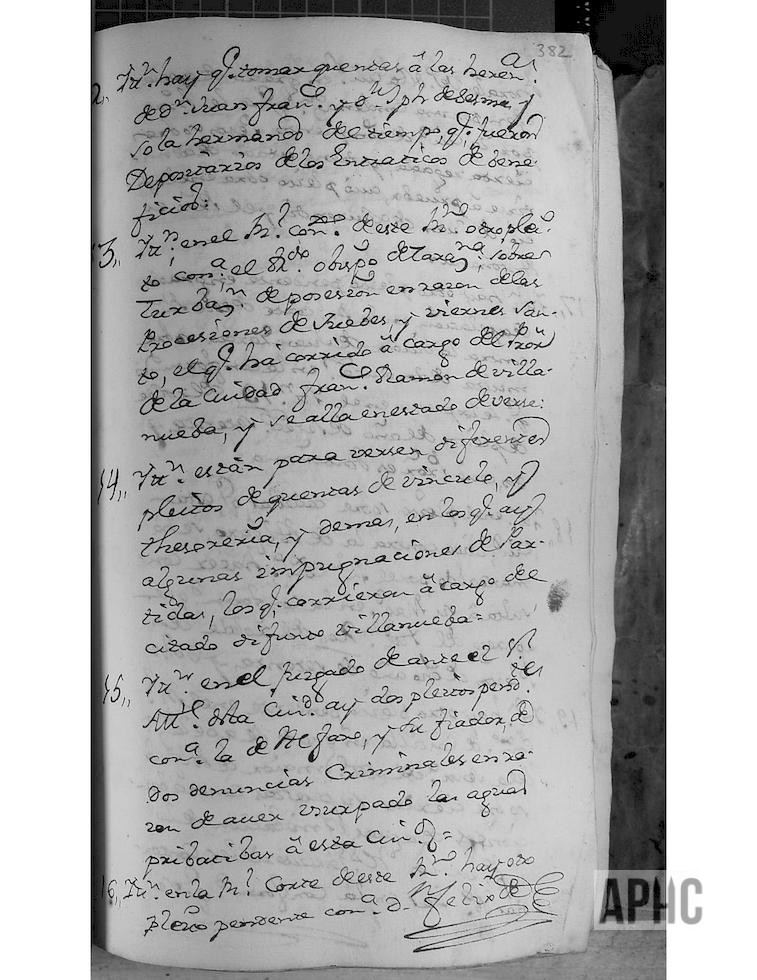 382
2,, Ittn. hay q. tomar quentas â las heren.as
de dn. Juan franco. y dn. Jph de Sesma, y
sola hermanos del tiempo, q. fueron
Depositarios de los Entraticos de bene-
ficios:
13,, Ittn. en el Rl. conso. de este Rno. otro plei-
to con.a el Rdo. obispo de Tarazna. sobre
Turbazn. de posesion en razon de las
Procesiones de Juebes, y viernes San-
to, el q. ha corrido â cargo del Pror.
de la Ciudad franco. Ramon de villa-
nueba, y se alla en estado de verse:
14,, Ittn. están para versen diferentes
pleitos de quentas de vinculo, y
thesoreria, y demas, en los q. ay
algunas impugnaciones de Par-
tidas, los q. corrieron â cargo del
citado difunto villanueba=
15,, Ittn. en el Juzgado de ante el Sr.
Alle. dsta Ciud. ay dos pleitos pend.tes
con.a la de Alfaro, y su fiador
dos denuncias Criminales en ra-
zon de aver usurpado las aguas
pribatibas â esta Ciud.=
16,, Ittn. en la Rl. Corte de este Rno. hay otro
pleito pendente con.a dn. felix de
APHC